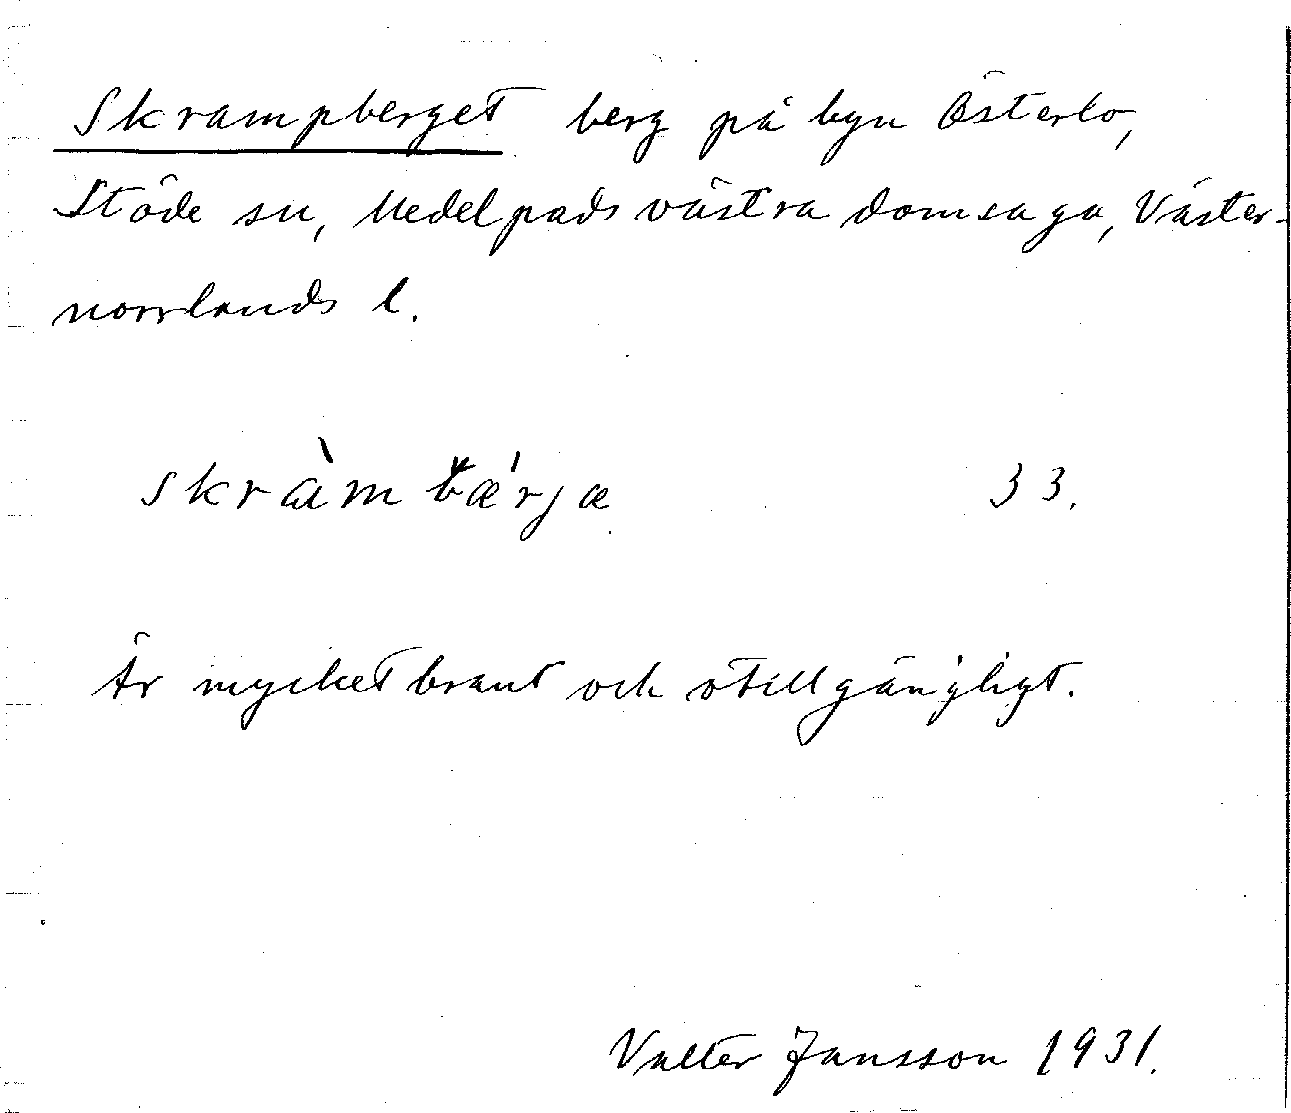 Skrampberget berg på byn Österlo,
Stöde sn, Medelpads västra domsaga, Väster-
norrlands l.
skràmbæ'rjæ 33.
Är mycket brant och otillgängligt.
Valter Jansson 1931.